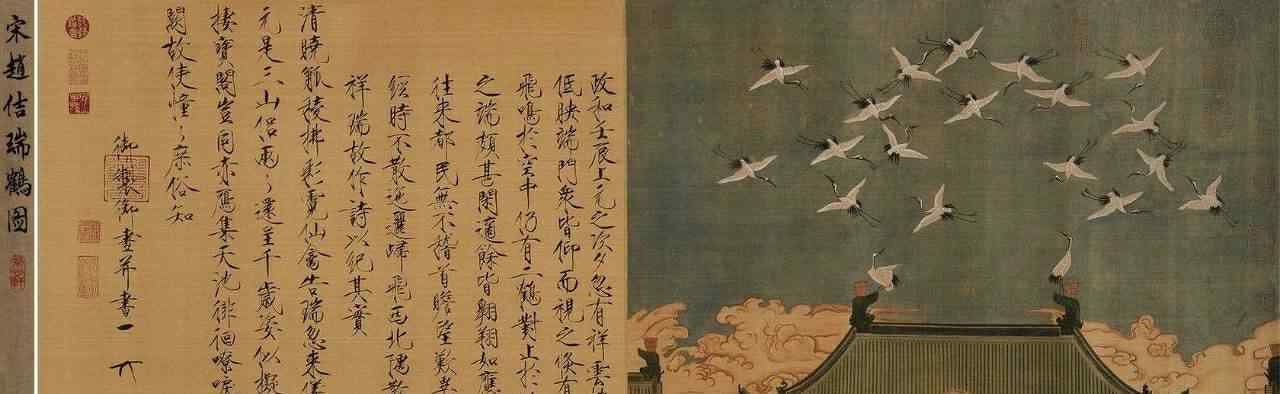 政和壬辰上元之次夕忽有祥雲
低映端門衆皆仰而視之倏有
飛鳴於空中仍有二鶴對止於
之端頗甚閑適餘皆翱翔如應
往來都民無不稽首瞻望歎異
經時不散迤邐歸飛西北隅散
祥瑞故作詩以紀其實
清曉觚稜拂彩霓仙禽告瑞忽來儀
元是三山侶兩〻還呈千歲姿似擬
棲寶閣豈同赤鴈集天池徘徊嘹唳
闕故使憧〻庶俗知
御製御畫并書
宋趙佶瑞鶴圖